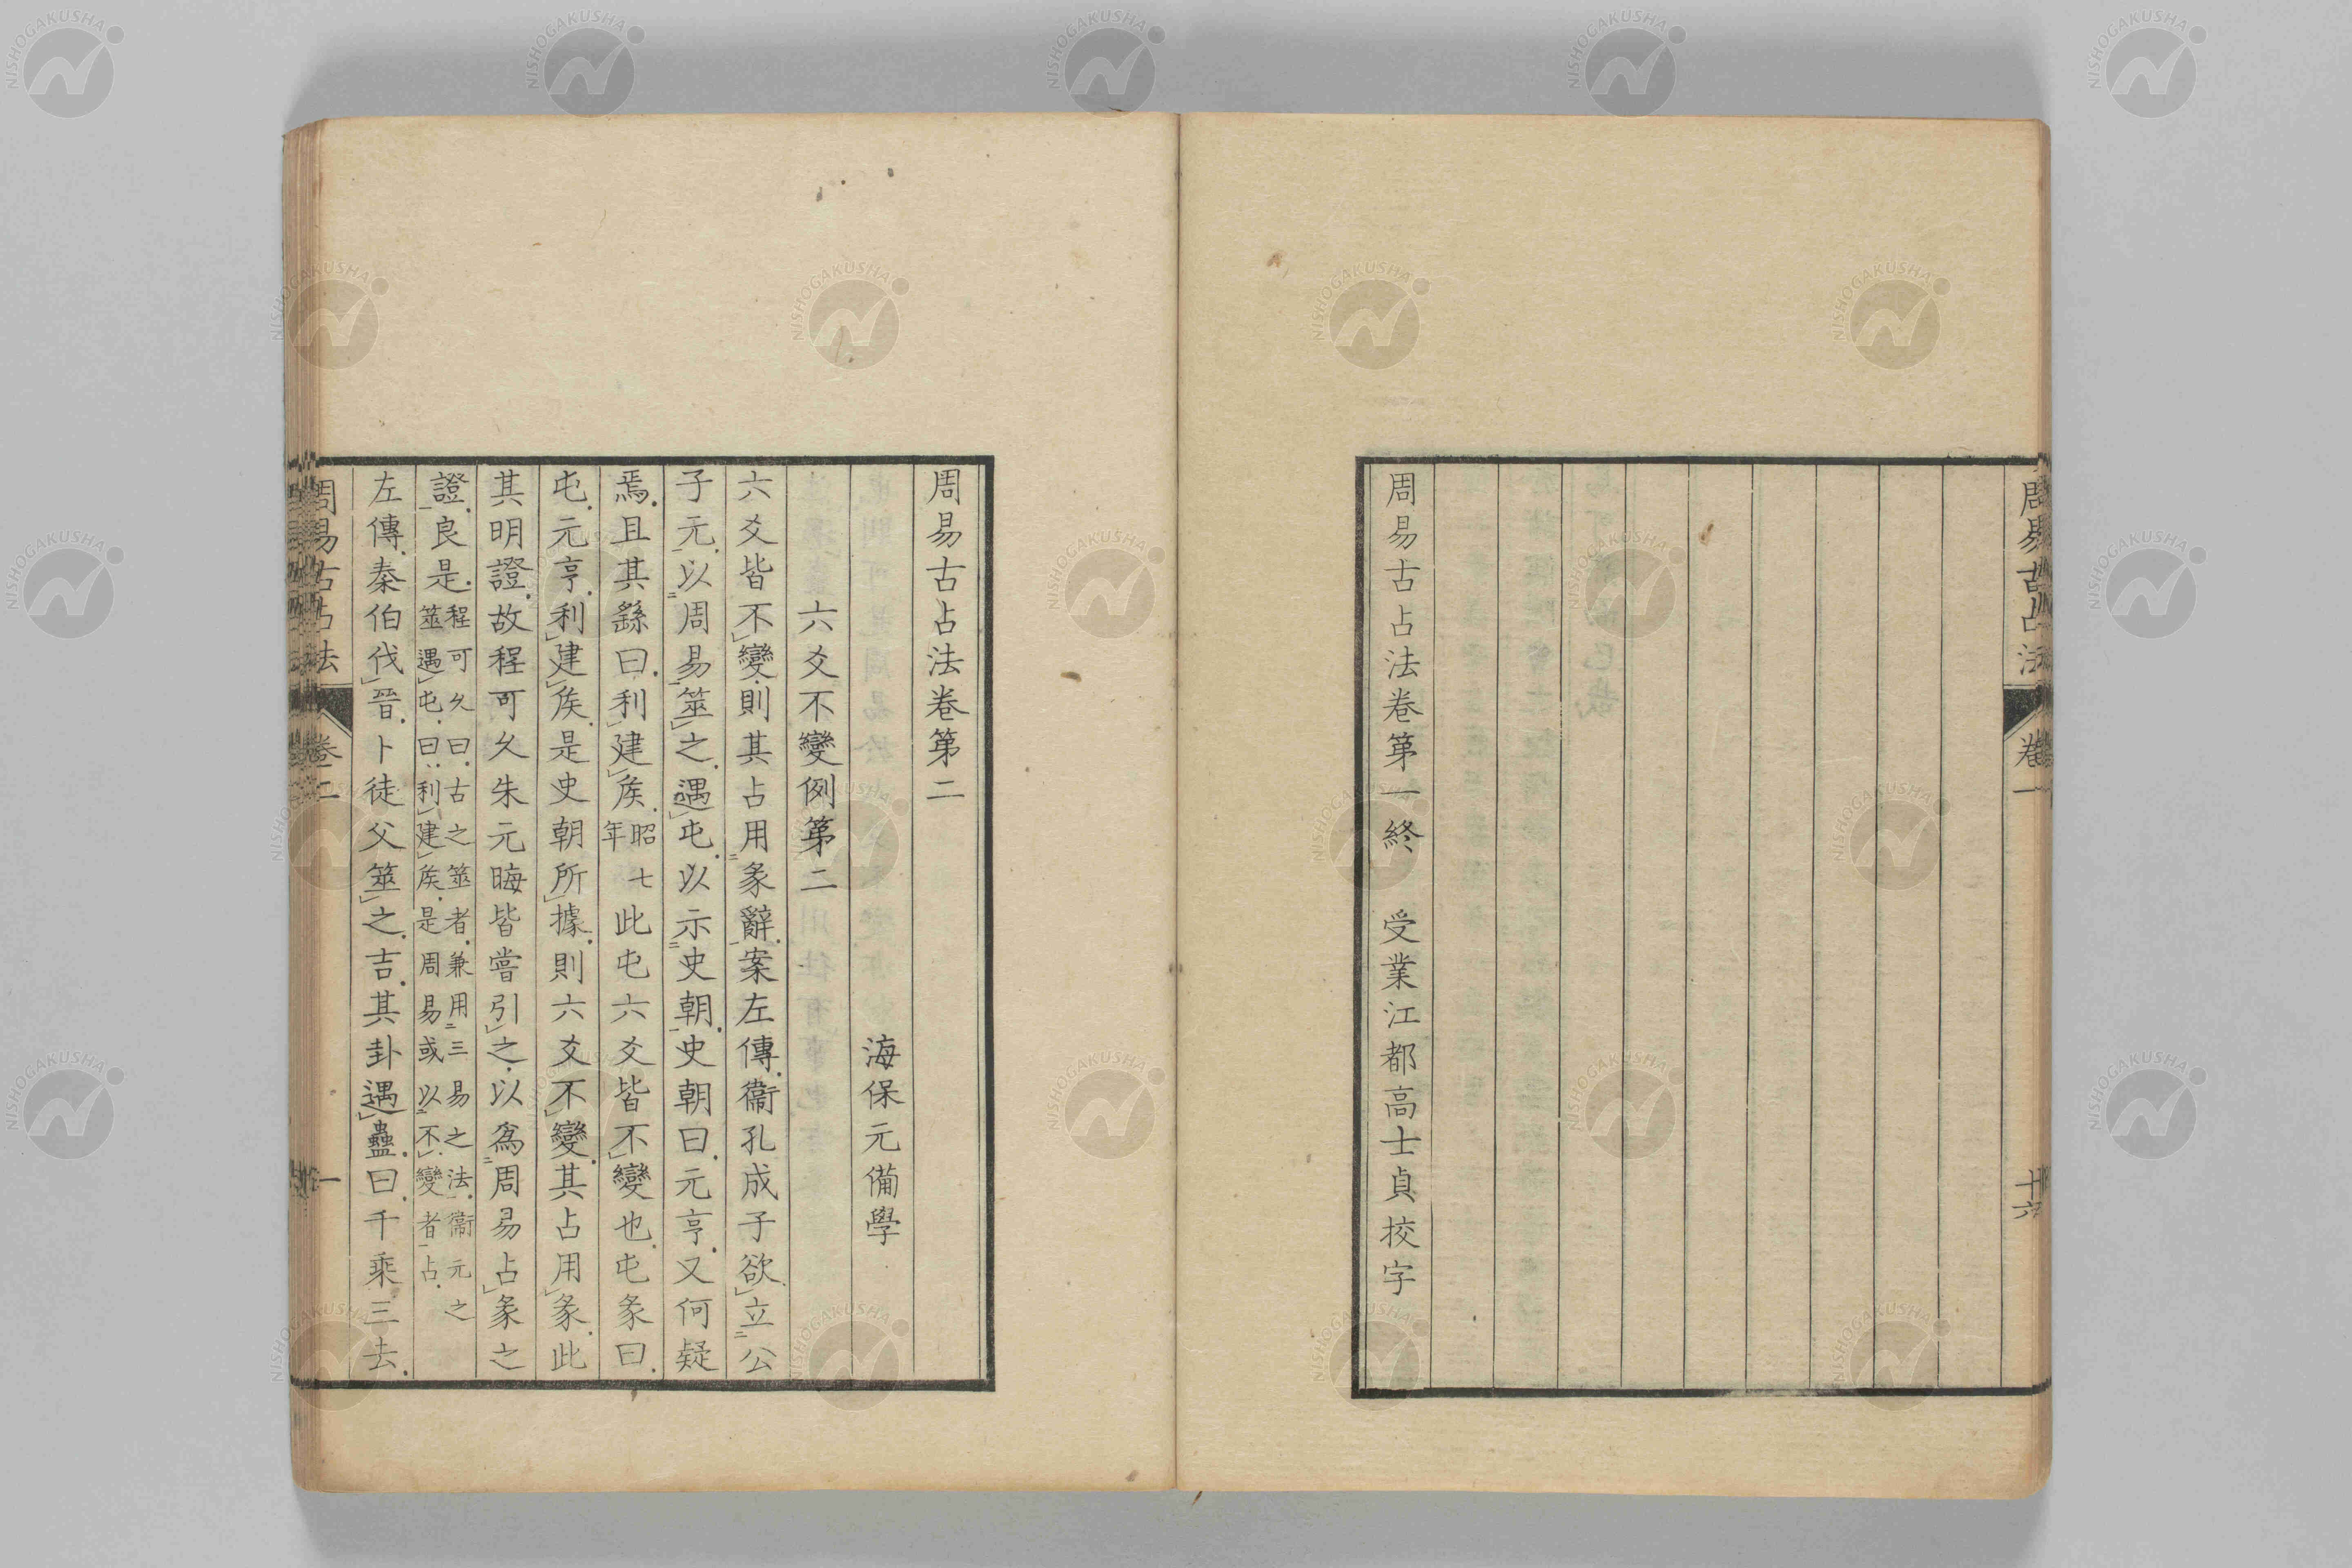 周易古占法 卷一 十六
周易古占法卷第一終 受業江都高士貞校字
周易古占法卷第二
海保元備學
六爻不變例第二
六爻皆不變則其占用彖辭案左傳衞孔成子欲立公
子元以周易筮之遇屯以示史朝史朝曰元亨又何疑
焉且其繇曰利建矦昭七年此屯六爻皆不變也屯彖曰
屯元亨利建矦是史朝所據則六爻不變其占用彖此
其明證故程可久朱元晦皆嘗引之以爲周易占彖之
證良是程可久曰古之筮者兼用三易之法衞元之筮遇屯曰利建矦是周易或以不變者占
左傳秦伯伐晉卜徒父筮之吉其卦遇蠱曰千乘三去
周易古占法 卷二 一
NISHOGAKUSHA